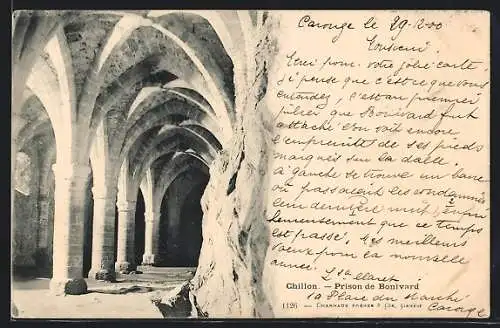 Carouge le 29-12-00
Monsieur.
Merci pour votre jolie carte
je pense que c'est ce que vous
entendez, c'est au premier
pilier que Bonivard fut
attaché l'on voit encore
l'empreinte de ses pieds
marqués sur la dalle.
à gauche se trouve un banc
où passaient les condamnés
leur dernière nuit,
heureusement que ce temps
est passé. Mes meilleurs
vœux pour la nouvelle
année.
Chillon. — Prison de Bonivard
1126 — CHARNAUX FRÈRES & Cie, GENÈVE
1a Place du Marché
Carouge